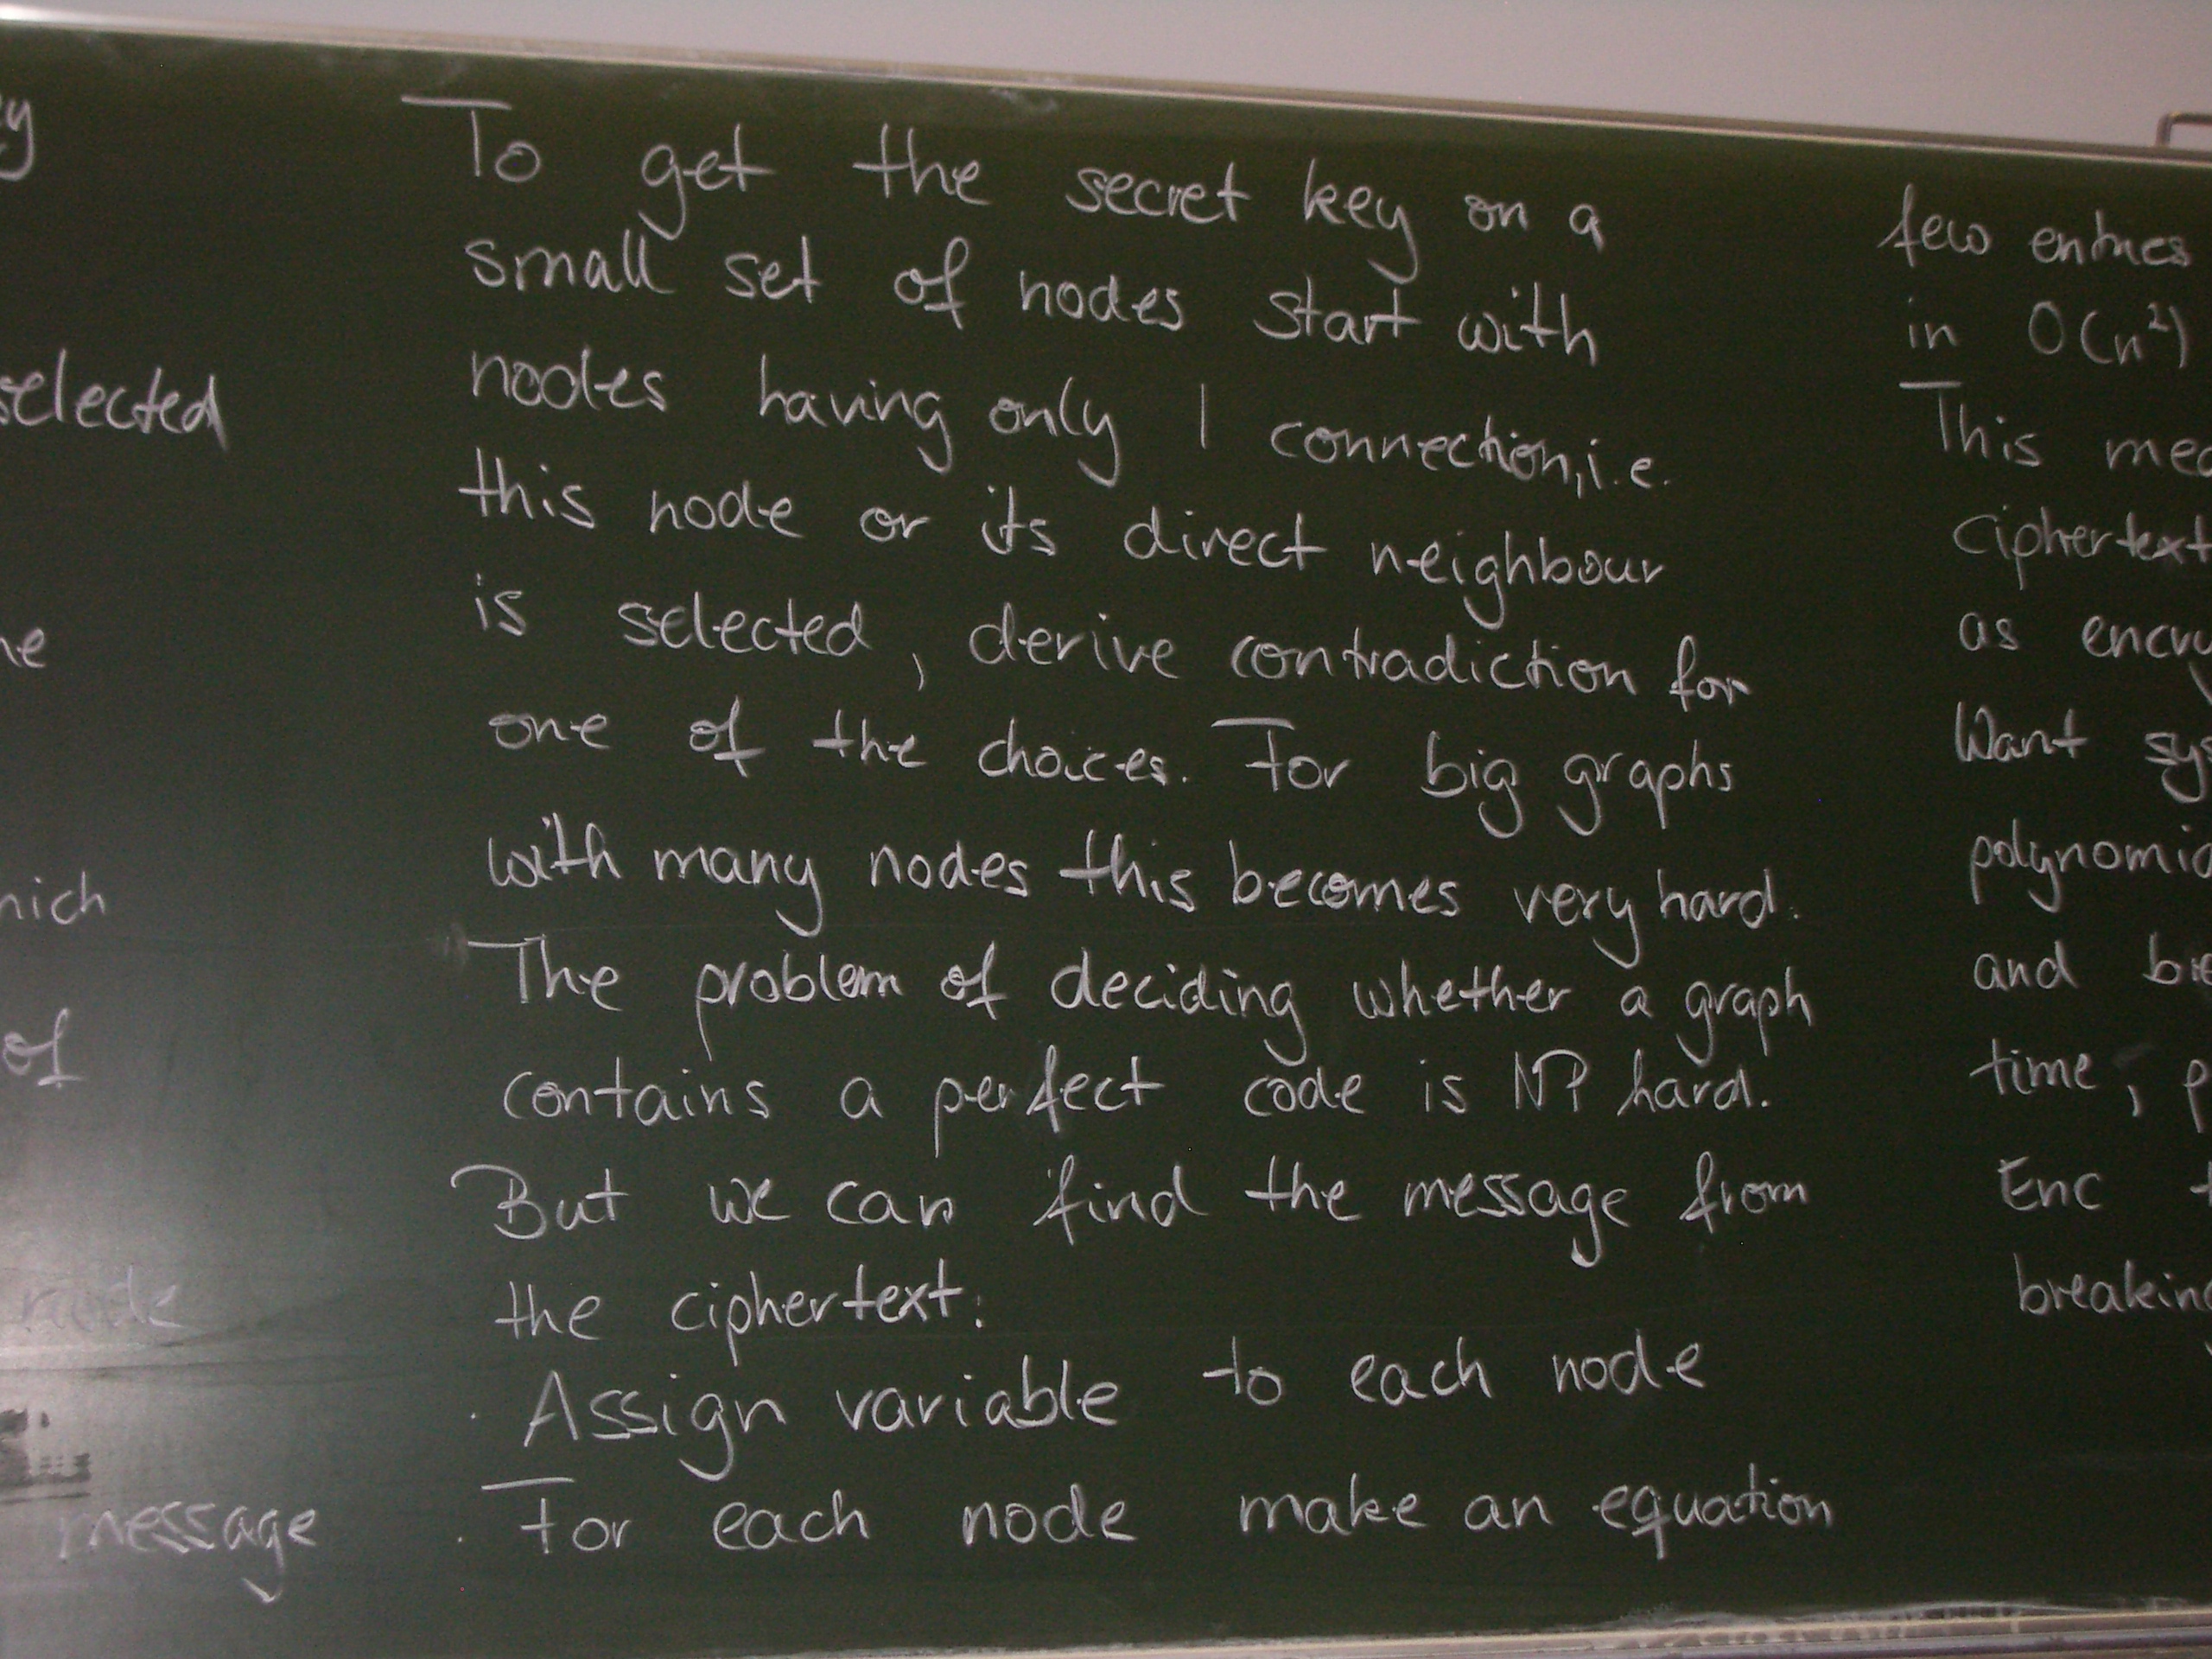 selected
of
message
To get the secret key on a
small set of nodes start with
nodes having only 1 connection, i.e.
this node or its direct neighbour
is selected, derive contradiction for
one of the choices. For big graphs
with many nodes this becomes very hard.
The problem of deciding whether a graph
contains a perfect code is NP hard.
But we can find the message from
the ciphertext:
· Assign variable to each node
· For each node make an equation
few entries
in O(n²)
This
ciphertext
as
Want
and
time,
Enc